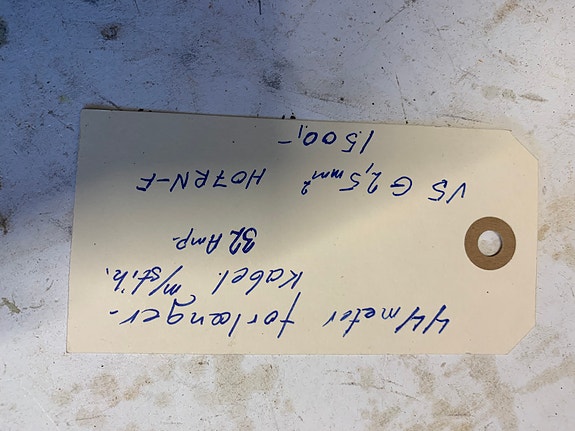 44 meter forlænger-
kabel m/stik.
32 Amp.
V5 G 2,5 mm² H07RN-F
1.500,-